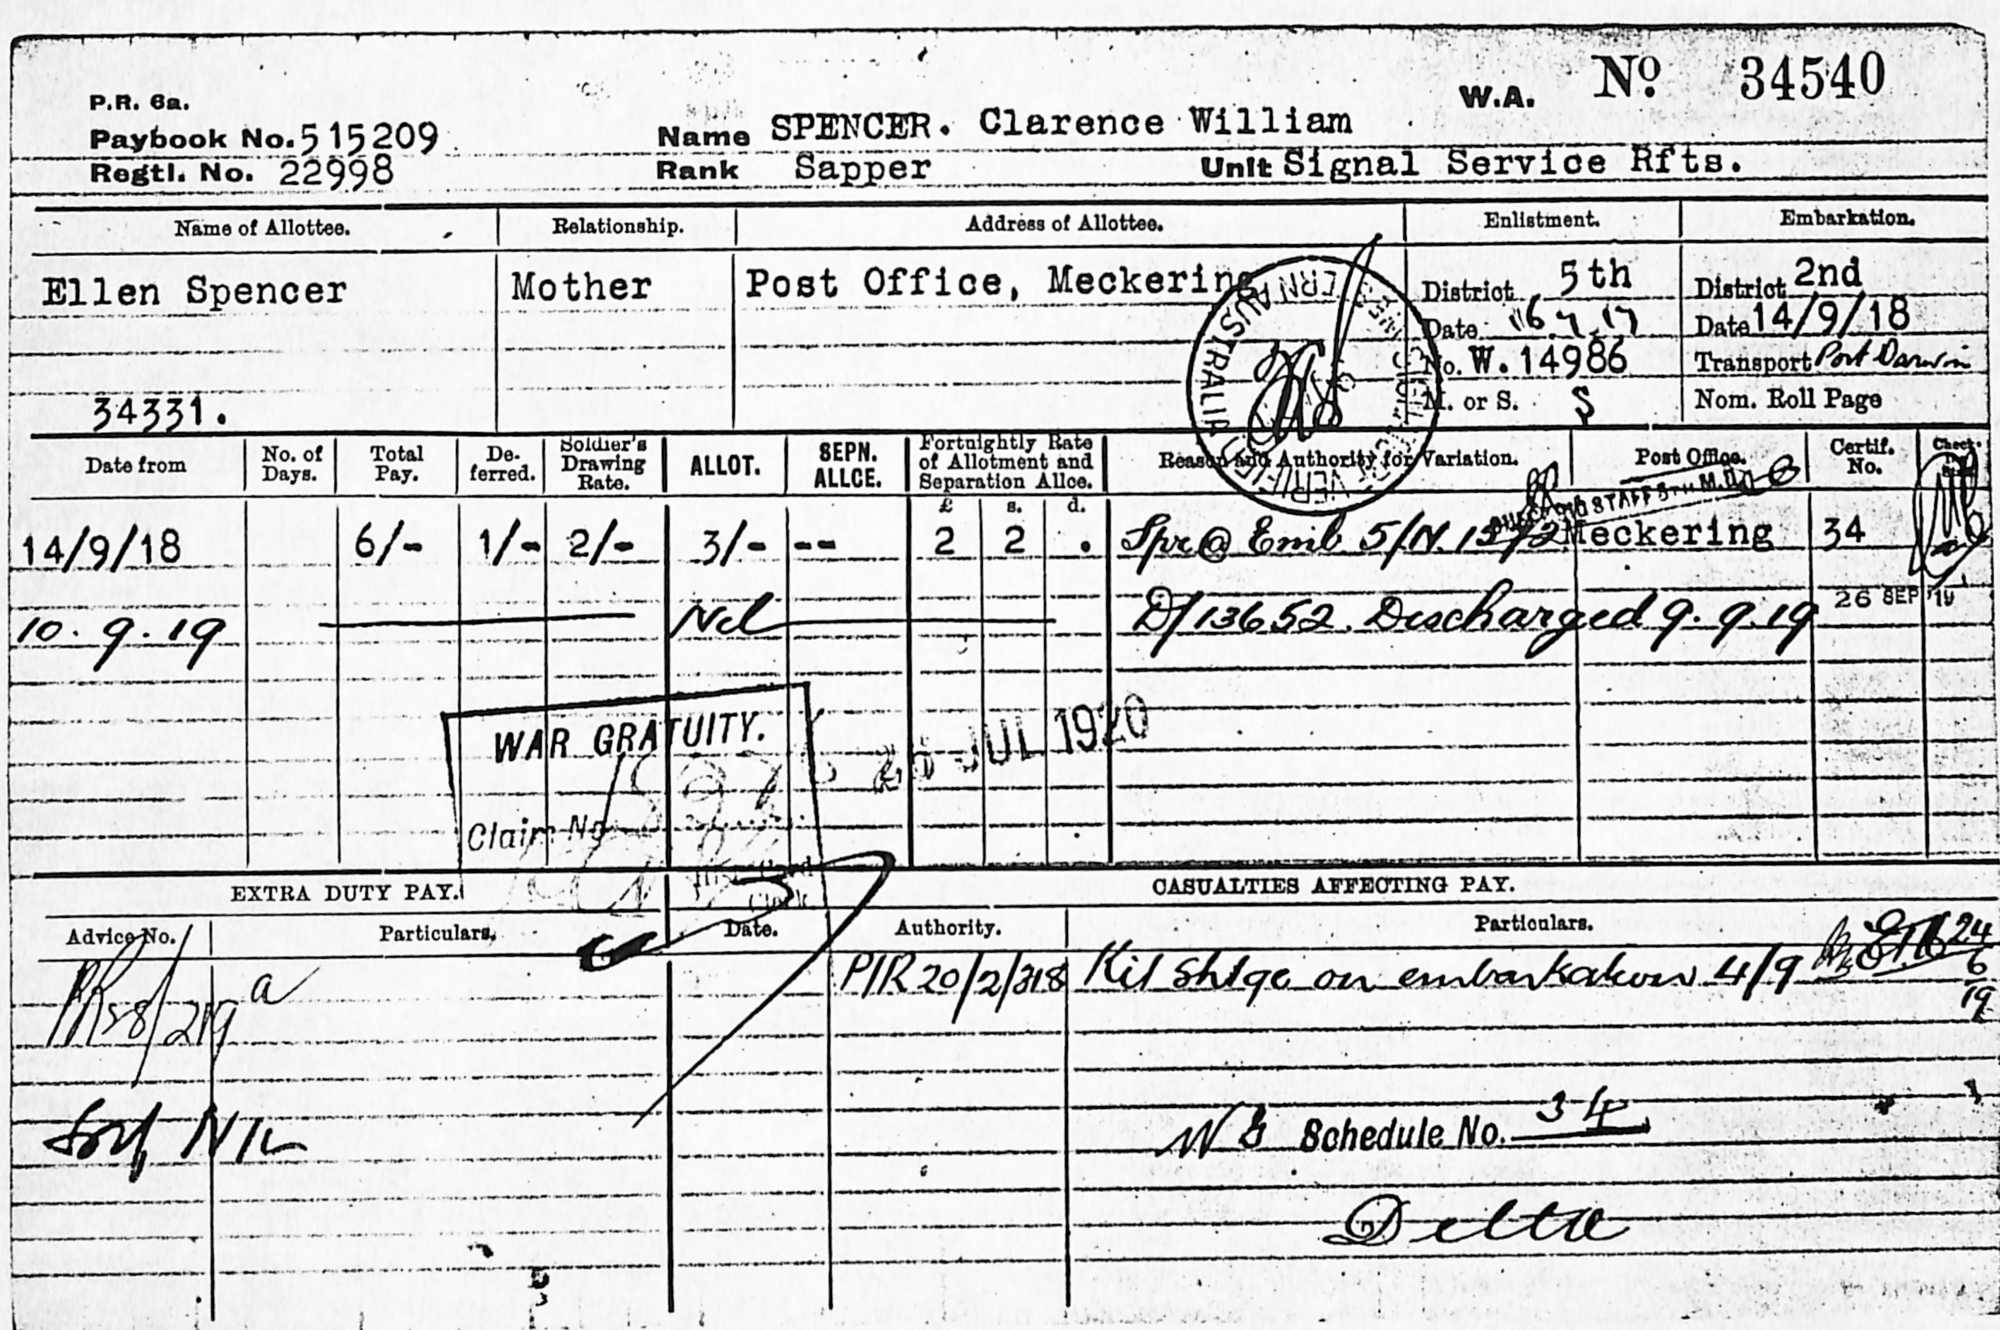 W.A. No. 34540
P.R. 6a.
Paybook No. 515209 Name SPENCER. Clarence William
Regtl. No. 22998 Rank Sapper Unit Signal Service Rfts.
Name of Allottee. Relationship. Address of Allottee. Enlistment. Embarkation.
Ellen Spencer Mother Post Office, Meckering District 5th District 2nd
Date 16 7 17 Date 14/9/18
No. W. 14986 Transport Port Darwin
34331. M. or S. S Nom. Roll Page
WESTERN AUSTRALIA VERIFIED
Date from No. of Days. Total Pay. De-ferred. Soldier's Drawing Rate. ALLOT. SEPN. ALLCE. Fortnightly Rate of Allotment and Separation Allce. Reason and Authority for Variation. Post Office. Certif. No.
£ s. d.
STAFF 5TH M.D.
14/9/18 6/- 1/- 2/- 3/- -- 2 2 . Spr @ Emb 5/N. Meckering 34
26 SEP 19
10.9.19 Nil D/13652. Discharged 9.9.19
WAR GRATUITY.
JUL 1920
Claim No
EXTRA DUTY PAY. CASUALTIES AFFECTING PAY.
Advice No. Particulars. Date. Authority. Particulars.
P/R 20/2/318 Kit shtge on embarkation 4/9 24 6 19
W G Schedule No. 34